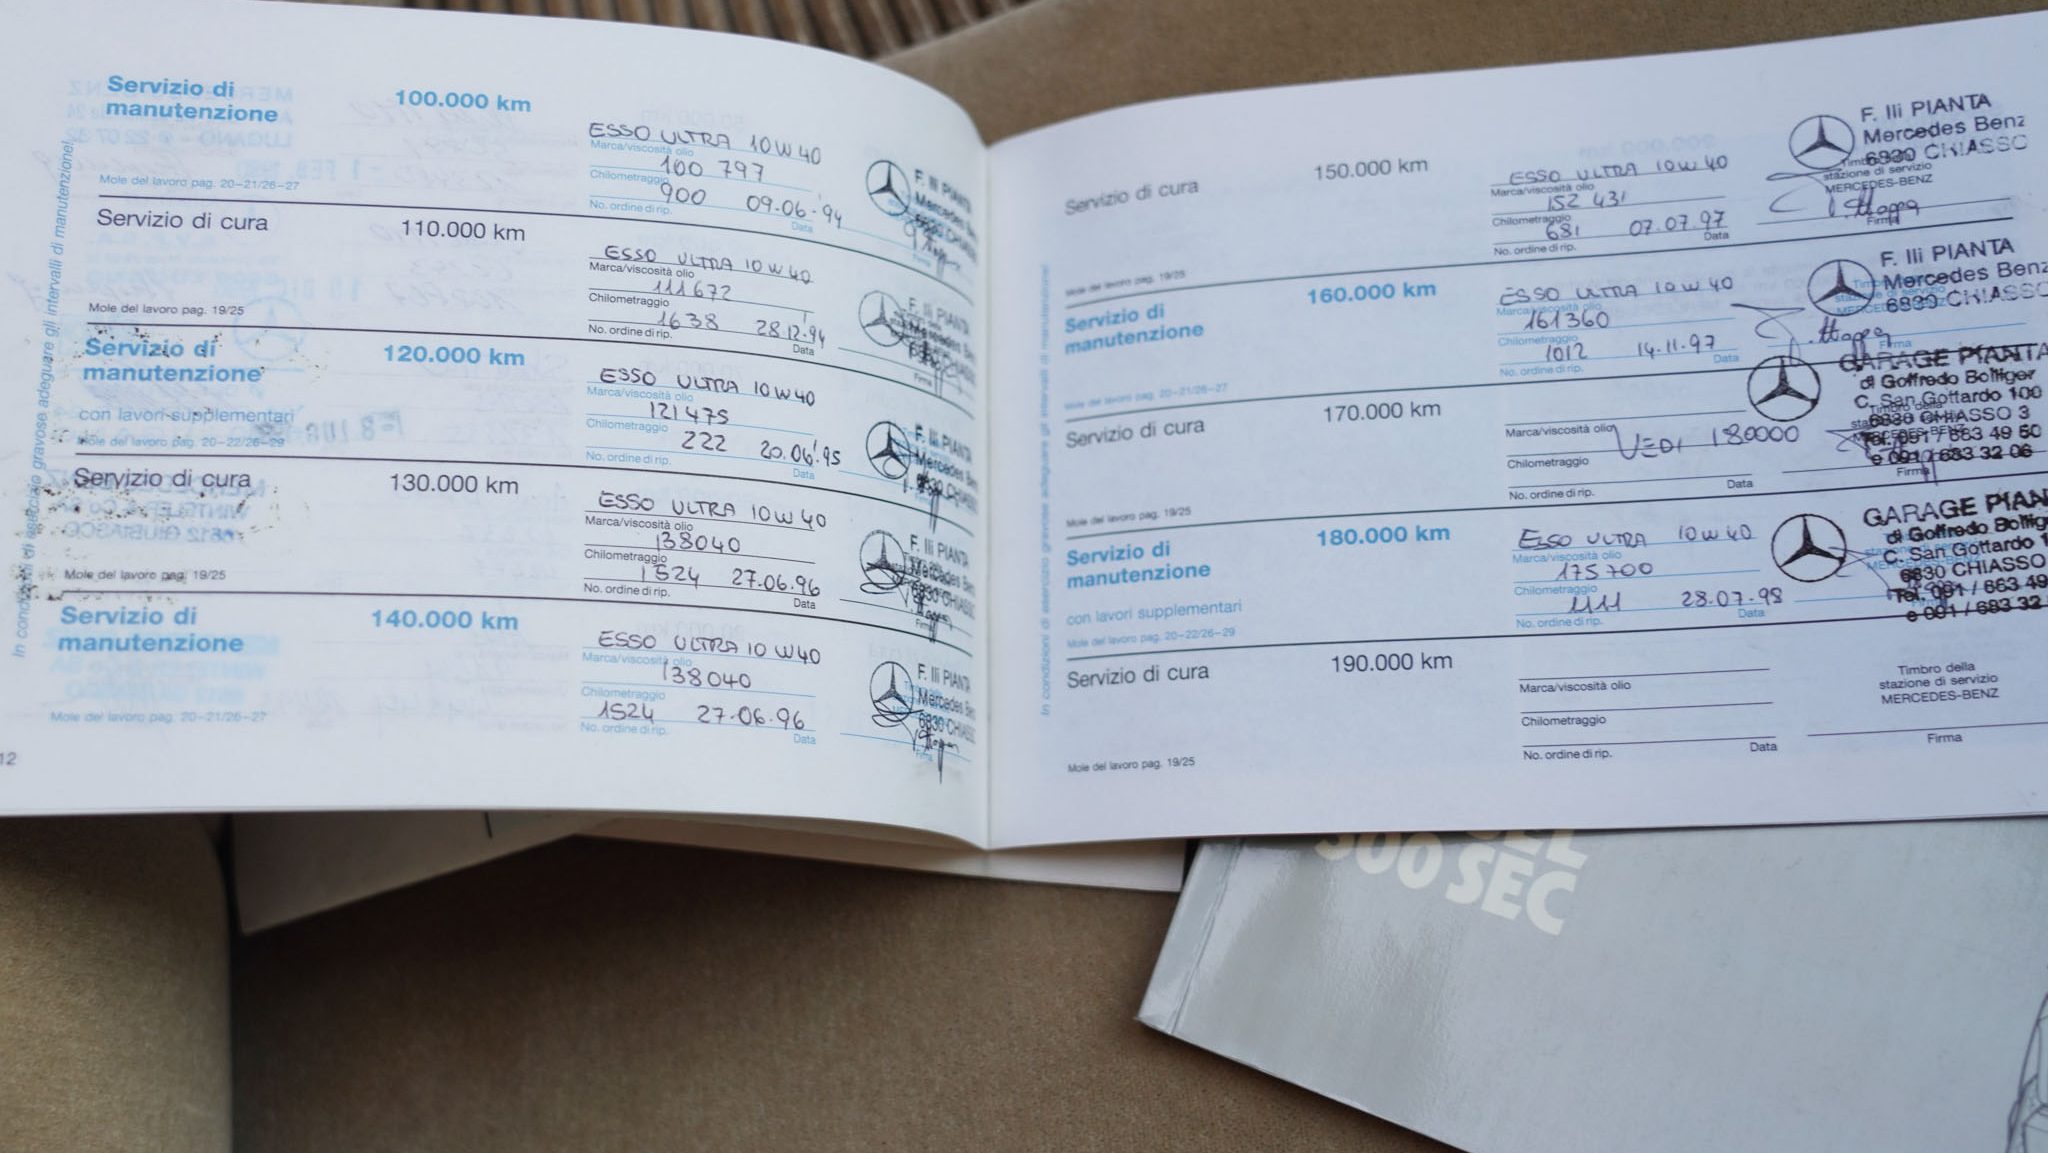 In condizioni di esercizio gravose adeguare gli intervalli di manutenzione!
Servizio di
manutenzione
100.000 km
ESSO ULTRA 10W40
Marca/viscosità olio
100 797
Chilometraggio
900 09.06.94
No. ordine di rip. Data
Mole del lavoro pag. 20–21/26–27
F. lli PIANTA
Mercedes
6830 CHIASS
Firma
Servizio di cura
110.000 km
ESSO ULTRA 10W40
Marca/viscosità olio
111672
Chilometraggio
1638 28.12.94
No. ordine di rip. Data
Mole del lavoro pag. 19/25
F. lli PIANTA
Servizio di
manutenzione
120.000 km
con lavori supplementari
ESSO ULTRA 10W40
Marca/viscosità olio
121475
Chilometraggio
222 20.06.95
No. ordine di rip. Data
Mole del lavoro pag. 20–22/26–29
F. lli PIANTA
Mercedes
6830 CHIASS
Servizio di cura
130.000 km
ESSO ULTRA 10W40
Marca/viscosità olio
138040
Chilometraggio
1524 27.06.96
No. ordine di rip. Data
Mole del lavoro pag. 19/25
F. lli PIANTA
Mercedes Ben
6830 CHIASSO
Firma
Servizio di
manutenzione
140.000 km
ESSO ULTRA 10W40
Marca/viscosità olio
138040
Chilometraggio
1524 27.06.96
No. ordine di rip. Data
Mole del lavoro pag. 20–21/26–27
F. lli PIANTA
Mercedes Ben
6830 CHIASSO
Firma
12
Servizio di cura
150.000 km
ESSO ULTRA 10W40
Marca/viscosità olio
152 431
Chilometraggio
681 07.07.97
No. ordine di rip. Data
Mole del lavoro pag. 19/25
F. lli PIANTA
Mercedes Benz
6830 CHIASSO
stazione di servizio
MERCEDES-BENZ
Firma
Servizio di
manutenzione
160.000 km
ESSO ULTRA 10W40
Marca/viscosità olio
161360
Chilometraggio
1012 14.11.97
No. ordine di rip. Data
Mole del lavoro pag. 20–21/26–27
F. lli PIANTA
Mercedes Benz
6830 CHIASSO
Firma
Servizio di cura
170.000 km
Marca/viscosità olio
VEDI 180000
Chilometraggio
No. ordine di rip. Data
Mole del lavoro pag. 19/25
GARAGE PIANTA
di Goffredo Bolliger
C. San Gottardo 100
6830 CHIASSO 3
Tel. 091 / 683 49 50
e 091 / 683 32 06
Firma
Servizio di
manutenzione
180.000 km
con lavori supplementari
ESSO ULTRA 10W40
Marca/viscosità olio
175700
Chilometraggio
1111 28.07.98
No. ordine di rip. Data
Mole del lavoro pag. 20–22/26–29
GARAGE PIAN
di Goffredo Bollig
C. San Gottardo 1
6830 CHIASSO
Tel. 091 / 683 49
e 091 / 683 32
Servizio di cura
190.000 km
Marca/viscosità olio
Chilometraggio
No. ordine di rip. Data
Mole del lavoro pag. 19/25
Timbro della
stazione di servizio
MERCEDES-BENZ
Firma
500 SEC